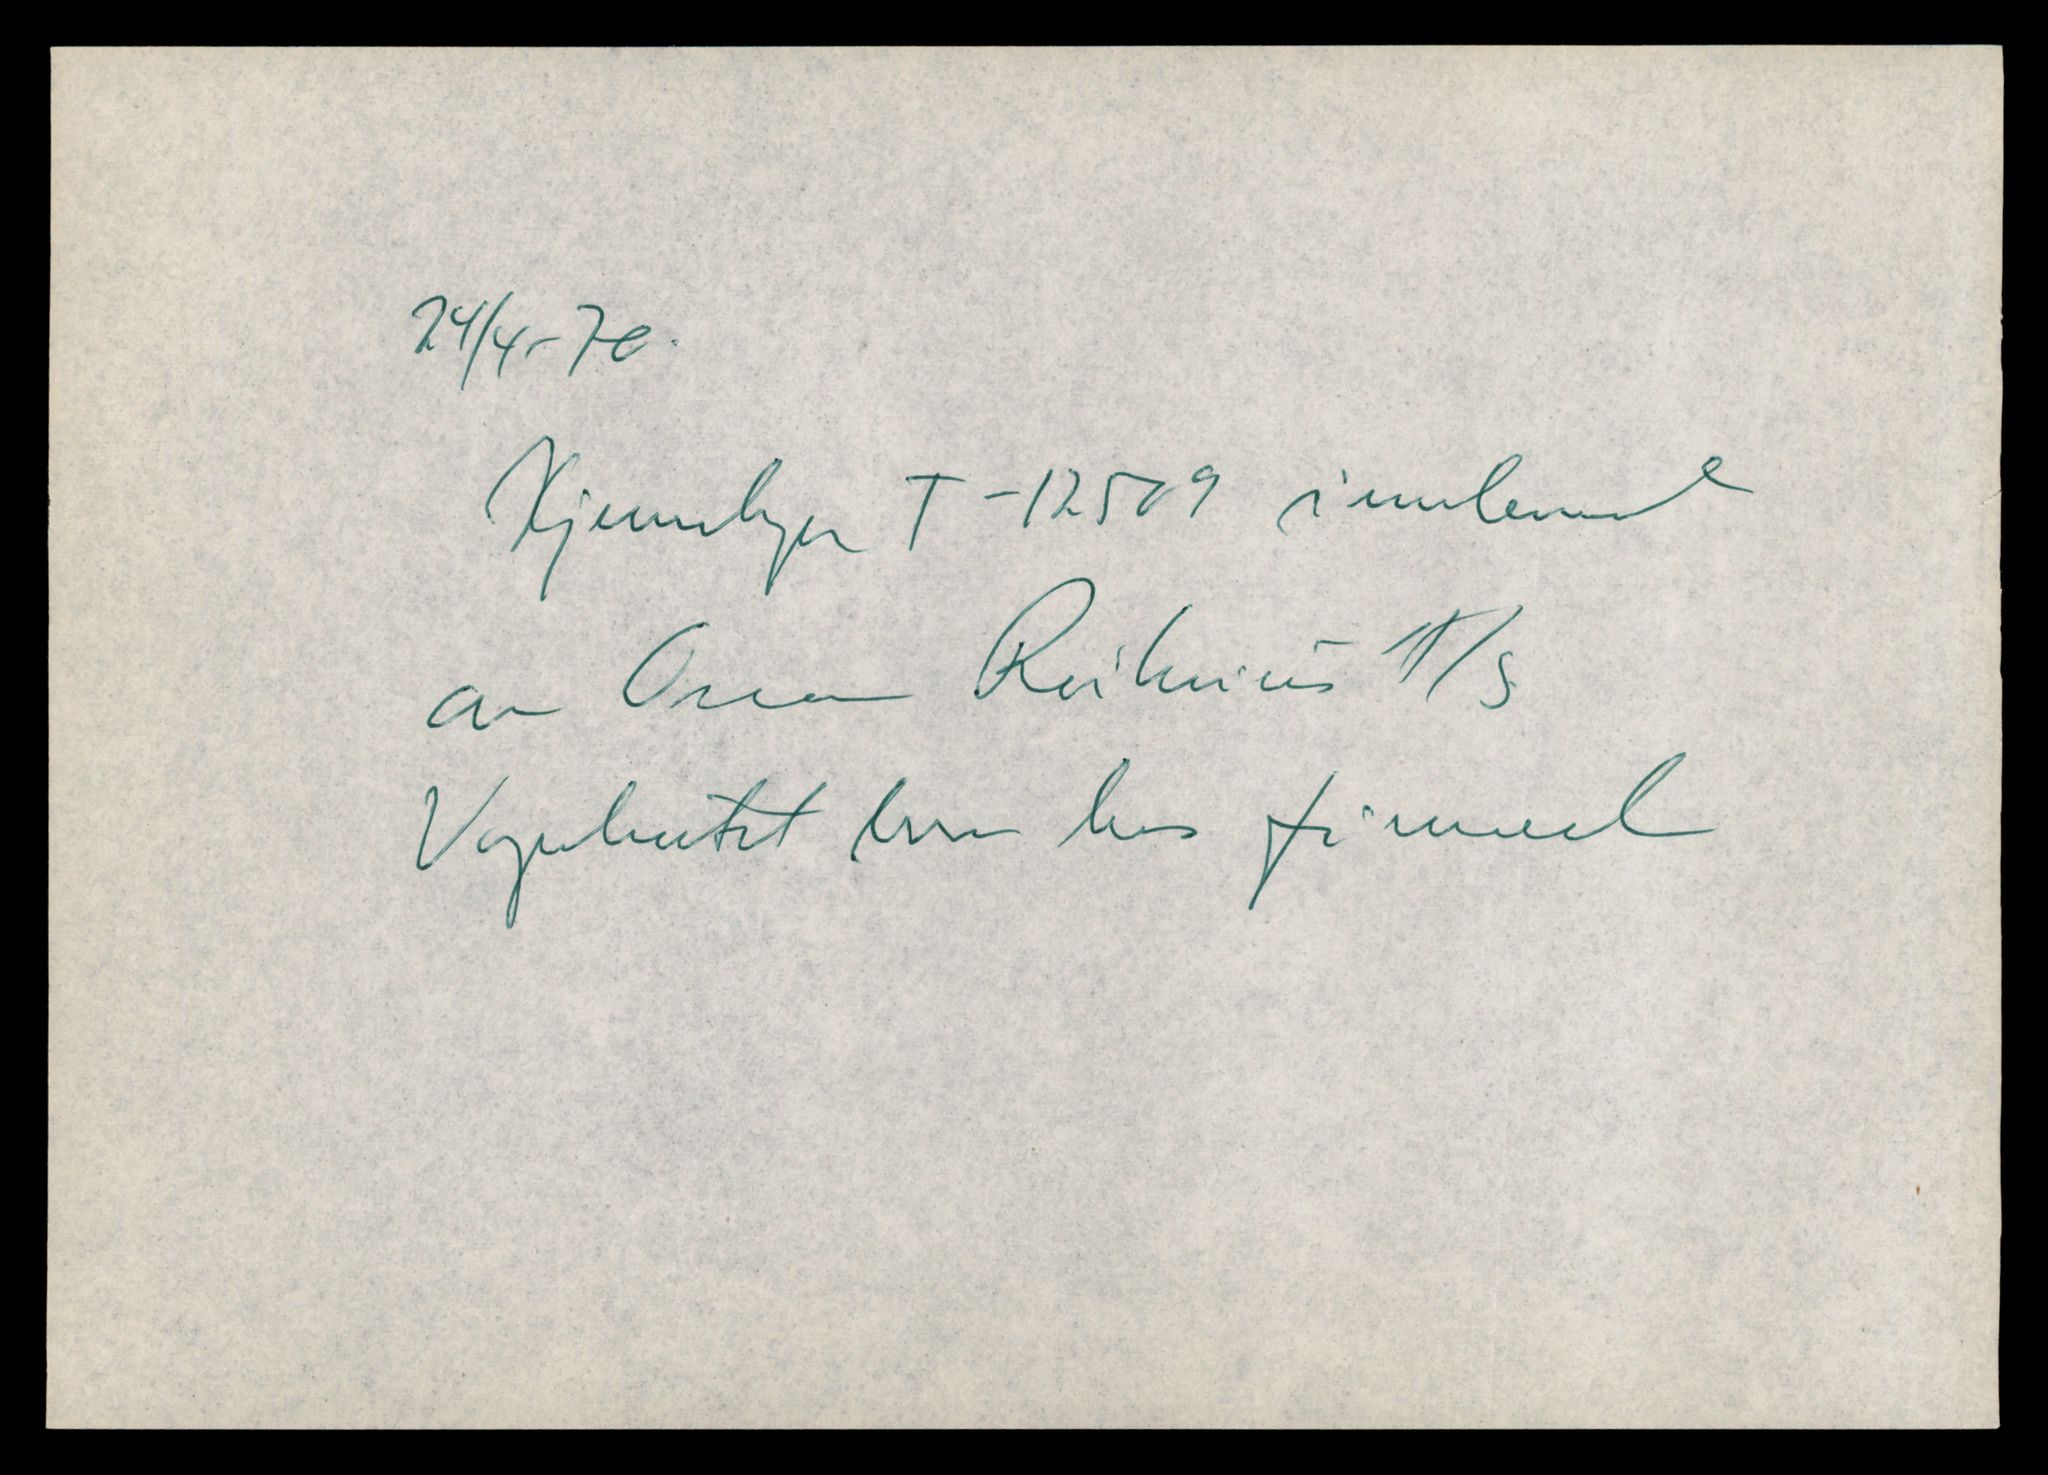 24/4-70.
Kjennetegn T-12509 innlevert
av Oscar A/S
Vognkortet kom hos firmaet